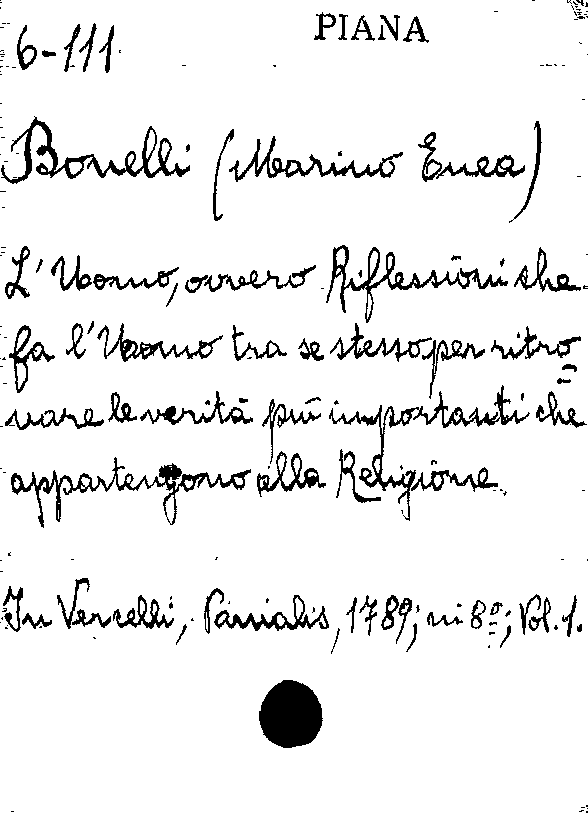 PIANA
6-111
Bonelli (Marino Enea)
L'Uomo, ovvero Riflessioni che
fa l'Uomo tra se stesso per ritro=
vare le verità più importanti che
appartengono alla Religione.
In Vercelli, Panialis, 1789; in 8º; Vol. 1.